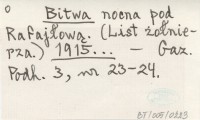 Bitwa nocna pod
Rafajłową. (List żołnie-
rza.) 1915... — Gaz.
Podh. 3, nr 23-24.